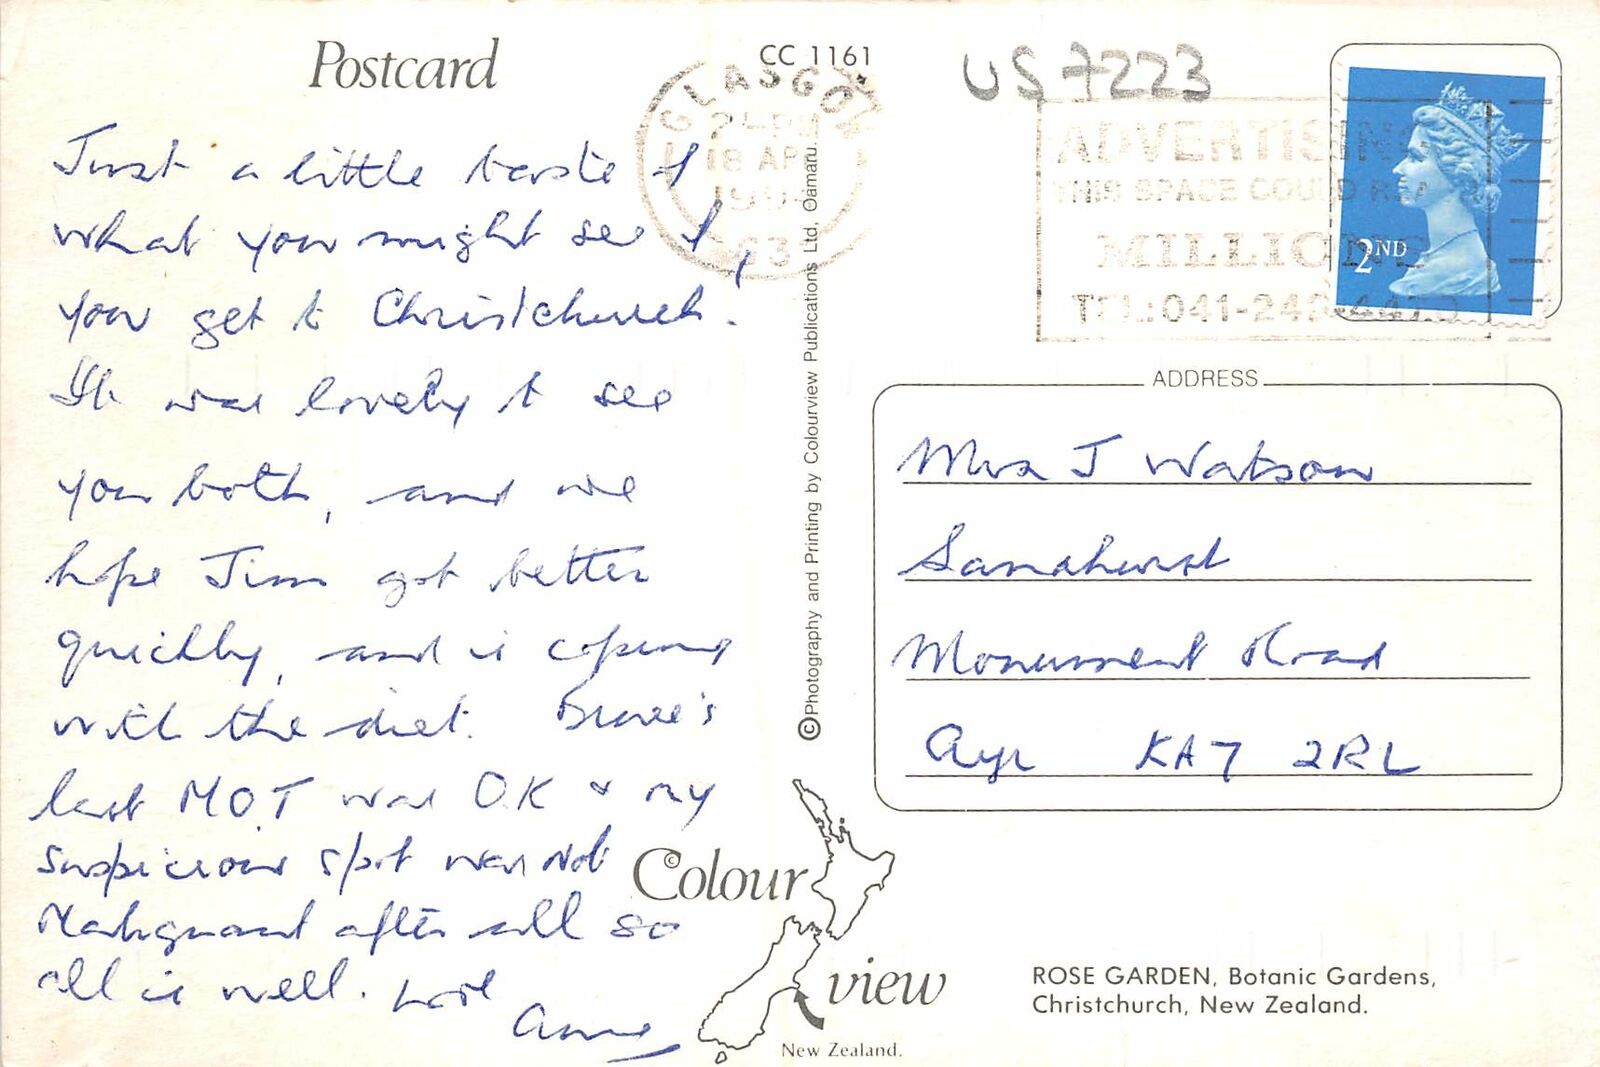 Postcard
CC 1161
US 7223
Just a little taste of
what you might see if
you get to Christchurch!
It was lovely to see
you both, and we
hope Jim got better
quickly, and is coping
with the diet.
last M.O.T was O.K & my
suspicious spot was not
Malignant after all so
all is well. Love
Anne
©Photography and Printing by Colourview Publications Ltd, Oamaru.
GLASGOW
18 AP
ADVERTISING
THIS SPACE COULD REA
MILLIONS
TEL:041-242-44
2ND
ADDRESS
Mrs J Watson
Sandhurst
Monument Road
Ayr KA7 2RL
© Colour
view
New Zealand.
ROSE GARDEN, Botanic Gardens,
Christchurch, New Zealand.